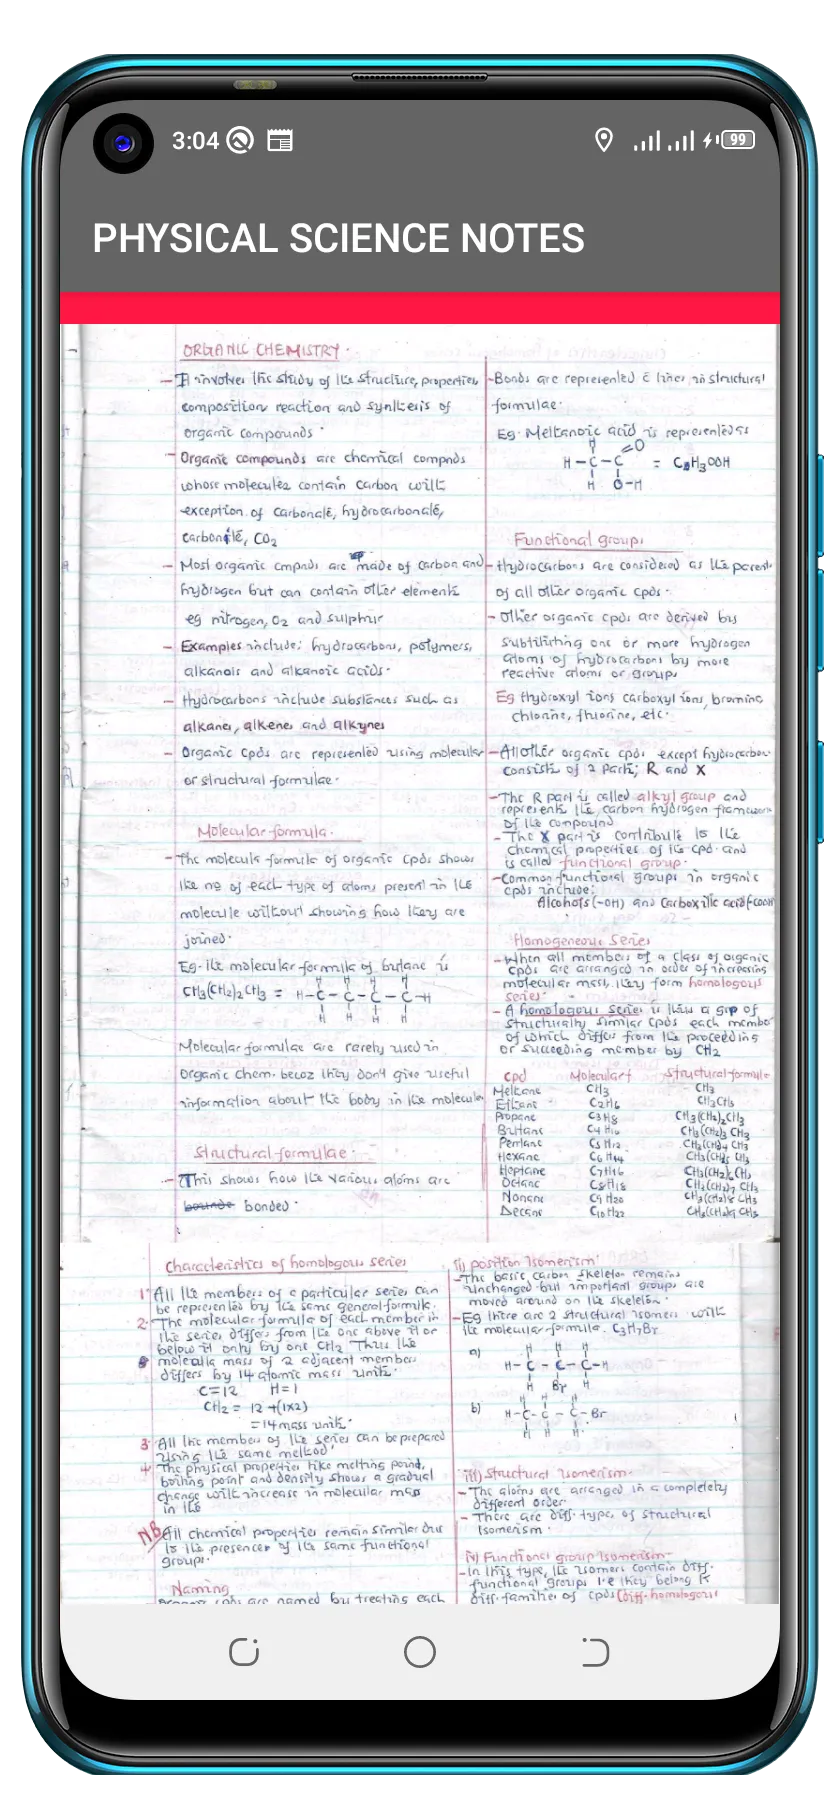 3:04
99
PHYSICAL SCIENCE NOTES
ORGANIC CHEMISTRY.
- It involves the study of the structure, properties,
composition reaction and synthesis of
organic compounds.
- Organic compounds are chemical compnds
whose molecules contain carbon with
exception of carbonate, hydrocarbonate,
CO2
- Most organic cmpnds are made of carbon and
hydrogen but can contain other elements
eg nitrogen, O2 and sulphur
- Examples include: hydrocarbons, polymers,
alkanols and alkanoic acids.
- Hydrocarbons include substances such as
alkanes, alkenes and alkynes
- Organic cpds are represented using molecular
or structural formulae.
Molecular formula.
- The molecula formula of organic cpds shows
the no of each type of atoms present in the
molecule without showing how they are
joined.
Eg. the molecular formula of butane is
CH3(CH2)2CH3 = H-C-C-C-C-H
H H H H
Molecular formulae are rarely used in
organic chem. becoz they don't give useful
information about the body in the molecule
Structural formulae.
- This shows how the various atoms are
bonded.
- Bonds are represented c lines in structural
formulae.
Eg. Methanoic acid is represented as
H O
H-C-C = H3OOH
H O-H
Functional groups
- Hydrocarbons are considered as the parents
of all other organic cpds.
- Other organic cpds are derived by
one or more hydrogen
atoms of hydrocarbons by more
reactive atoms or groups
Eg Hydroxyl ions carboxyl ions, bromine
chlorine, fluorine, etc.
- All other organic cpds except hydrocarbon
consists of 2 parts; R and X
- The R part is called alkyl group and
represents the carbon hydrogen framework
of the compound
- The X part is contribute to the
chemical properties of the cpd. and
is called functional group.
- Common functional groups in organic
cpds include:
Alcohols (-OH) and carboxilic acid (-COOH
Homogeneous Series
- When all members of a class of organic
cpds are arranged in order of increasing
molecular mass, they form homologous
series.
- A homologous series is thus a grp of
structurally similar cpds each membe
of which differs from the proceeding
or succeeding member by CH2
Cpd Molecular f Structural formula
Methane CH3 CH3
Ethane C2H6 CH3CH3
Propane C3H8 CH3(CH2)2CH3
Butane C4H10 CH3(CH2)3 CH3
Pentane C5H12 CH3(CH2)4 CH3
Hexane C6H14 CH3(CH2)5 CH3
Heptane C7H16 CH3(CH2)6CH3
Octane C8H18 CH3(CH2)7 CH3
Nonane C9H20 CH3(CH2)8 CH3
Decane C10H22 CH3(CH2)9 CH3
Characteristics of homologous series
1. All the members of a particular series can
be represented by the same general formula.
2. The molecular formula of each member in
the series differs from the one above it or
below it only by one CH2 Thus the
molecula mass of 2 adjacent members
differs by 14 atomic mass units.
C=12 H=1
CH2 = 12+(1x2)
=14 mass units.
3 All the members of the series can be prepared
using the same method
4. The physical properties like melting point,
boiling point and density shows a gradual
change with increase in molecular mass
in the
NB All chemical properties remain similar due
to the presence of the same functional
groups.
Naming
cpds are named by treating each
ii) position Isomerism
- The basic carbon skeleton remains
unchanged but important groups are
moved around on the skeleton.
- Eg there are 2 structural isomers with
the molecular formula. C3H7Br
a) H H H
H-C-C-C-H
H Br H
b) H H H
H-C-C-C-Br
H H H
iii) Structural isomerism.
- The atoms are arranged in a completely
different order
- There are diff. types of structural
Isomerism.
iv) Functional group Isomerism
- In this type, the isomers contain diff.
functional groups i.e they belong to
diff. families of cpds (diff. homologous